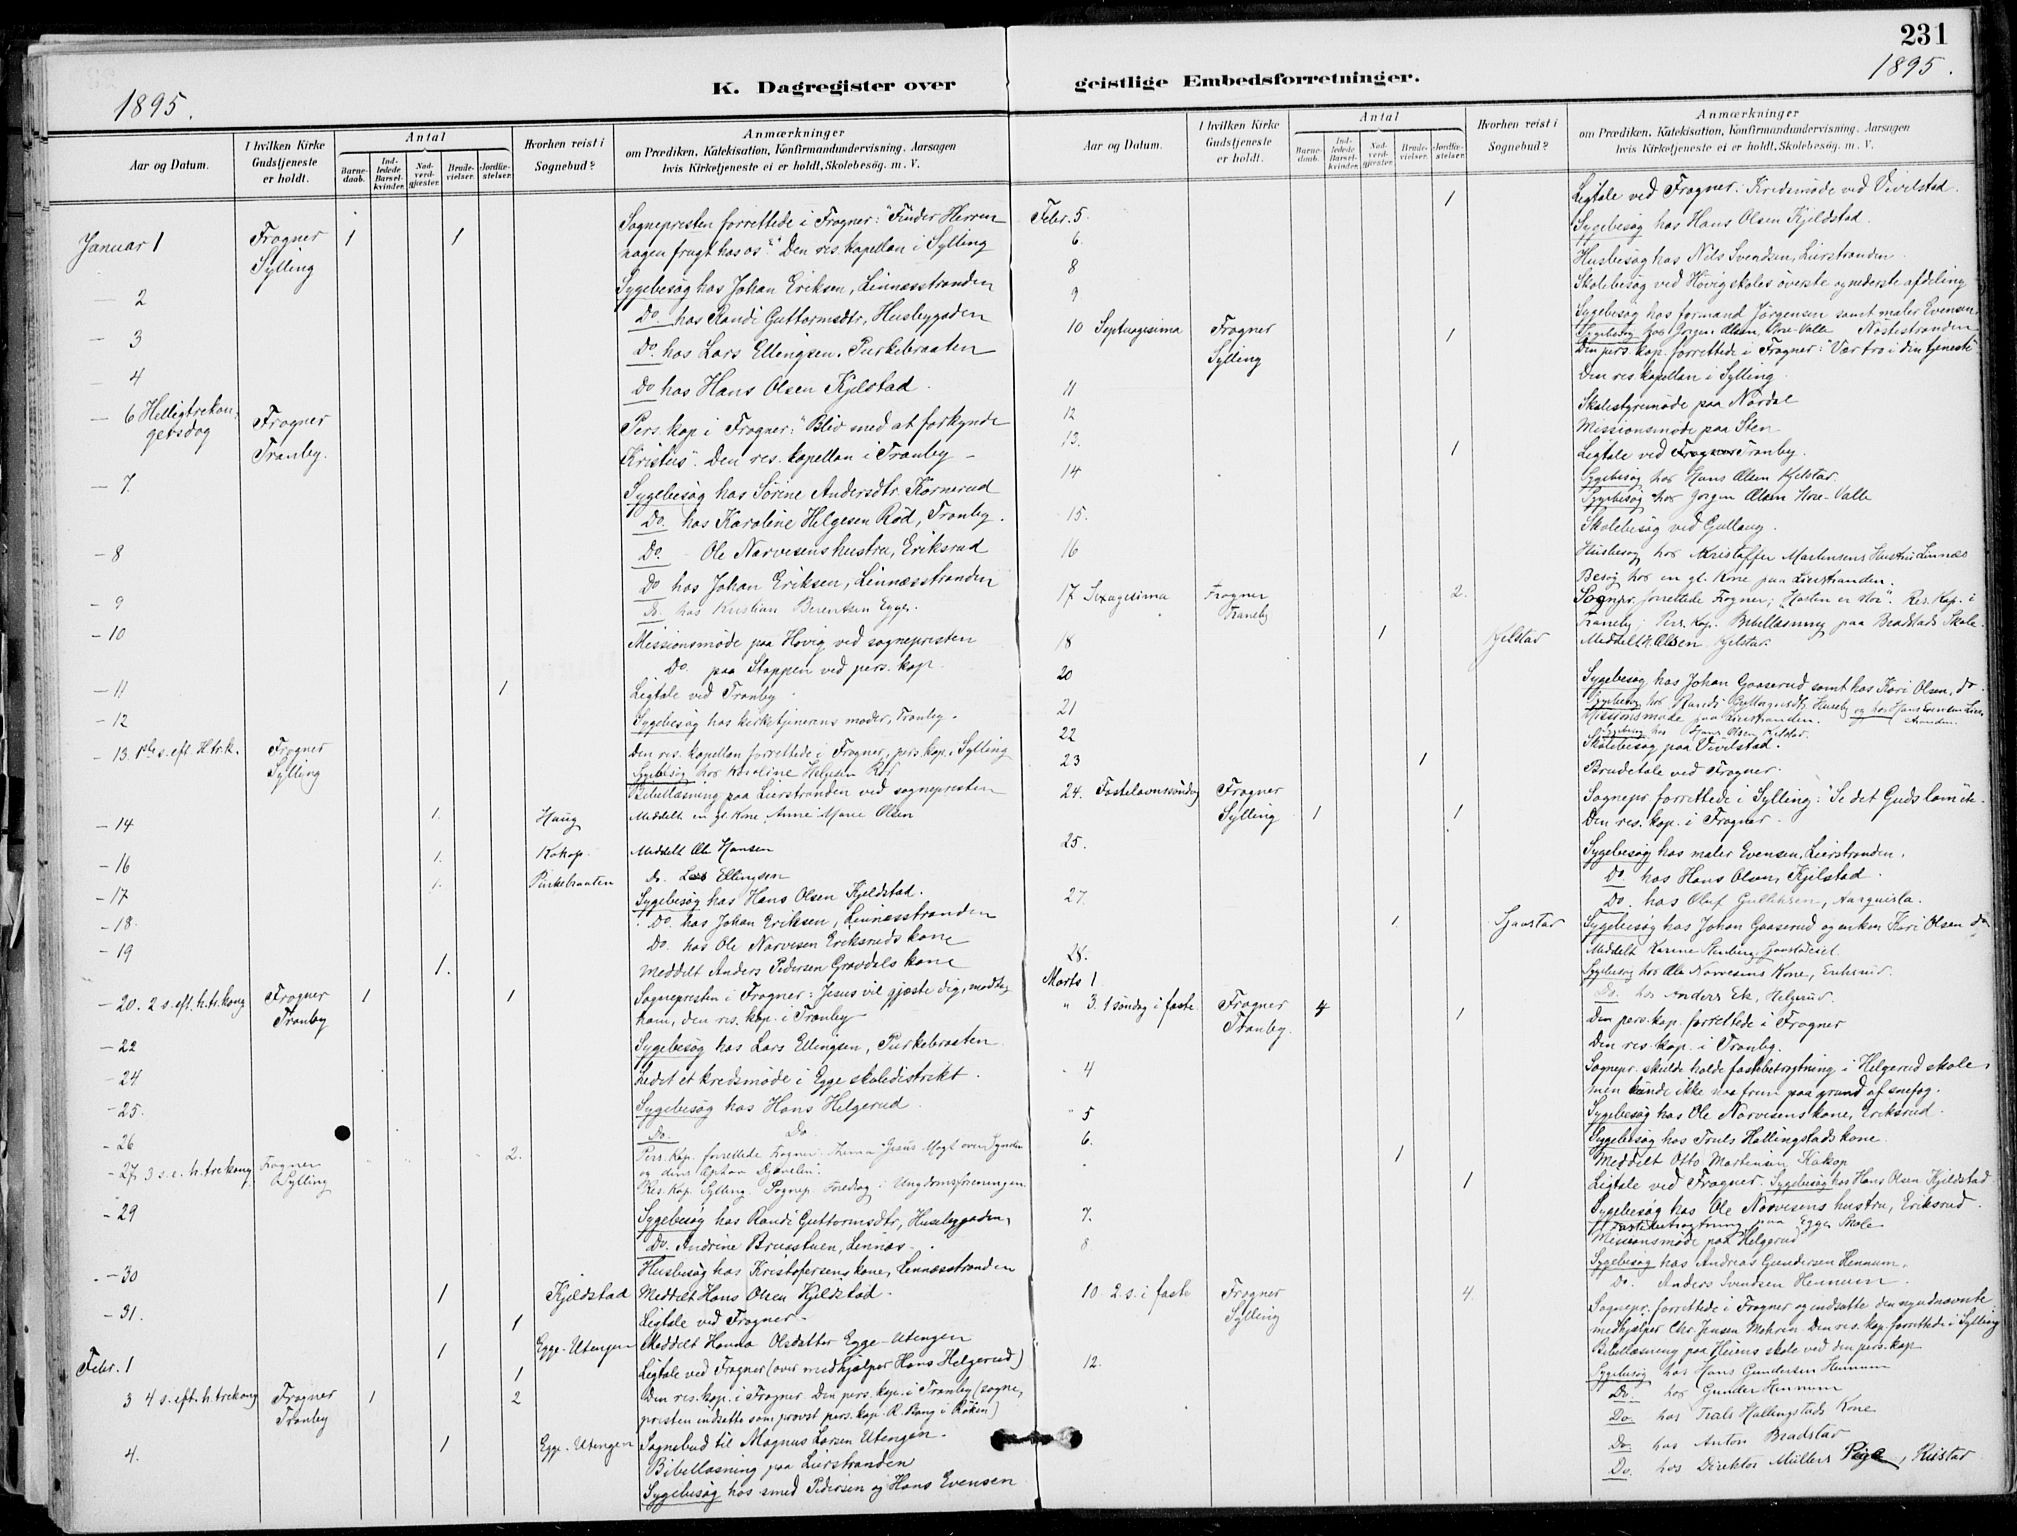 231
1895.
1895.
K. Dagregister over geistlige Embedsforretninger.
Aar og Datum.
I hvilken Kirke Gudstjeneste er holdt.
Antal
Barnedaab.
Indledede Barselkvinder.
Nadverdgjester.
Brudevielser.
Jordfæstelser.
Hvorhen reist i Sognebud?
Anmærkninger
om Prædiken, Katekisation, Konfirmandundervisning, Aarsagen
hvis Kirketjeneste ei er holdt, Skolebesøg. m. V.
Januar 1 Frogner 1 1 Sognepresten forrettede i Frogner: "Finder Herren
Sylling nogen frugt hos os?" Den res. kapellan i Sylling
— 2 Sygebesøg hos Johan Eriksen, Linnæsstranden
Do. hos Randi Guttormsdtr, Husbygaden
— 3 Do. hos Lars Ellingsen, Purkebraaten
— 4 Do hos Hans Olsen Kjelstad.
— 6 Helligtrekon- Frogner Pers. kap i Frogner: "Bliv med at forkynde
gersdag Tranby. Kristus". Den res. kapellan i Tranby —
— 7. Sygebesøg hos Sørine Andersdtr. Kornerud
Do. hos Karoline Helgesen Rød, Tranby.
— 8 Do — Ole Narvesens hustru, Eriksrud
Do hos Johan Eriksen, Linnæsstranden
— 9 Do. hos Kristian Berentsen Egge.
— 10 Missionsmøde paa Høvig ved sognepresten
Do. paa Stoppen ved pers. kap.
— 11 1 Ligtale ved Tranby.
— 12 Sygebesøg hos kirketjenerens moder, Tranby.
— 13. 1ste s. eft. H.tr.k. Frogner Den res. kapellan forrettede i Frogner, pers. kap. i Sylling
Sylling Sygebesøg hos Karoline Helgesen Rød
Bibellæsning paa Lierstranden ved sognepresten
— 14 1. Haug Meddelt en gl. Kone Anne Marie Olsen
— 16 1. Kokop. Meddelt Ole Hansen
— 17 1. Purkebraaten Do. Lars Ellingsen
Sygebesøg hos Hans Olsen Kjeldstad.
— 18. Do. hos Johan Eriksen, Linnæsstranden
— 19 Do. hos Ole Narvesen Eriksruds kone
1. Meddelt Anders Pedersen Gravdals kone
— 20. 2 s. eft. h. tr. kong Frogner 1 1 Sognepresten i Frogner: Jesus vil gjæste dig, modtag
Tranby ham, den res. kap. i Tranby
— 22 Sygebesøg hos Lars Ellingsen, Purkebraaten
— 24 Ledet et kredsmøde i Egge skoledistrikt.
— 25. Sygebesøg hos Hans Helgerud.
— 26 Do. Do.
— 27. 3 s. e. h. trekong Frogner 2. Pers. kap. forrettede Frogner: Thema "Jesus Magt over Synden
Sylling og dens Ophav Djævelen".
Res. Kap. Sylling. Sognep. Foredrag i Ungdomsforeningen
— 29 Sygebesøg hos Randi Guttormsdtr, Husebygaden,
Do. Andrine Bruastuen, Linnæs.
— 30 Husbesøg hos Kristofersens kone, Linnæsstranden
1 Kjeldstad Meddelt Hans Olsen Kjeldstad.
— 31. 1 Ligtale ved Frogner.
1 Egge-Utengen Meddelt Hanna Olsdatter Egge-Utengen
Febr. 1 1 Ligtale ved Frogner (over medhjælper Hans Helgerud)
3 4 s. eft. h. trekong Frogner 1 2 Den res. kap. i Frogner. Den pers. kap. i Tranby (sogne-
Tranby presten indsatte som provst pers. kap. R. Bang i Røken)
4. 1 Egge-Utengen Sognebud til Magnus Larsen Utengen.
Bibellæsning paa Lierstranden
Sygebesøg hos smed Pedersen og Hans Evensen
Aar og Datum.
I hvilken Kirke Gudstjeneste er holdt.
Antal
Barnedaab.
Indledede Barselkvinder.
Nadverdgjester.
Brudevielser.
Jordfæstelser.
Hvorhen reist i Sognebud?
Anmærkninger
om Prædiken, Katekisation, Konfirmandundervisning, Aarsagen
hvis Kirketjeneste ei er holdt, Skolebesøg. m. V.
Febr. 5. 1 Ligtale ved Frogner. Kredsmøde ved Vivelstad.
6. Sygebesøg hos Hans Olsen Kjeldstad.
8 Husbesøg hos Nils Svendsen, Lierstranden.
9 Skolebesøg ved Høvigskoles øverste og nederste afdeling
Sygebesøg hos formand Jørgensen samt maler Evensen,
10 Septuagesima Frogner 1 Sygebesøg hos Jørgen Olsen, Hore-Valle Nøstestranden
Sylling Den pers. kap. forrettede i Frogner: "Vær tro i din tjeneste"
Den res. kapellan i Sylling.
11 Skolestyremøde paa Nordal
12 Missionsmøde paa Sten
13. 1 Ligtale ved Frogner Tranby.
14 Sygebesøg hos Hans Olsen Kjelstad.
Sygebesøg hos Jørgen Olsen Hore-Valle
15. Skolebesøg ved Gullaug.
16 Husbesøg hos Kristoffer Martensens Hustru Linnæs
Besøg hos en gl. Kone paa Lierstranden.
17 Sexagesima Frogner 2. Sognepr. forrettede Frogner; "Høsten er stor". Res. Kap. i
Traneby Traneby; Pers. Kap. Bibellæsning paa Bradstads Skole.
18 1 Kjelstad Meddelt H. Olsen Kjelstad.
20 Sygebesøg hos Johan Gaaserud samt hos Kari Olsen, do.
21 Sygebesøg hos Randi Guttormsdtr, Huseby og hos Hans Evensen Lier-
Missionsmøde paa Lierstranden. stranden.
22 Sygebesøg hos Hans Olsen Kjelstad.
Skolebesøg paa Vivelstad.
23 1 Brudetale ved Frogner.
24. Fastelavnssøndag Frogner 1 1 Sognepr. forrettede i Sylling: "Se det Guds lam" etc.
Sylling Den res. kap. i Frogner.
25. Sygebesøg hos maler Evensen, Lierstranden.
Do hos Hans Olsen, Kjelstad.
27. Do. hos Oluf Gulliksen,
1 Gjaustad Sygebesøg hos Johan Gaaserud og enken Kari Olsen do
28. Meddelt Karine Stenberg,
Marts 1 Sygebesøg hos Ole Narvesens Kone, Eriksrud.
Do. hos Anders Ek, Helgerud.
" 3. 1 søndag i faste Frogner 4 1 Den pers. kap. forrettede i Frogner
Tranby. Den res. kap. i Tranby.
4 Sognepr. skulde holde fastebetragtning i Helgerud skole,
men kunde ikke naa frem paa grund af snefog.
5 Sygebesøg hos Ole Narvesens kone, Eriksrud.
6. Sygebesøg hos Truls Hallingstads kone.
1 Meddelt Otto Martinsen Kokop
1 Ligtale ved Frogner. Sygebesøg hos Hans Olsen Kjeldstad
7. Sygebesøg hos Ole Narvesens hustru, Eriksrud.
Fastebetragtning paa Egge Skole
8 Missionsmøde paa Helgerud
Sygebesøg hos Andreas Gundersen Hennum,
Do. Anders Svendsen Hennum.
10 2. s. i faste Frogner 4. Sognepr. forrettede i Frogner og indsatte den nyudnævnte
Sylling medhjælper Chr. Jensen Mehren. Den res. kap. forrettede i Sylling
Bibellæsning paa Heiens skole ved den pers. kap
12. Sygebesøg hos Hans Gundersen Hennum
Do. hos Gunder Hennum
Do. hos Trals Hallingstads Kone
Do hos Anton Bradstad
Do. hos Direktør Müllers Pige, Ristad